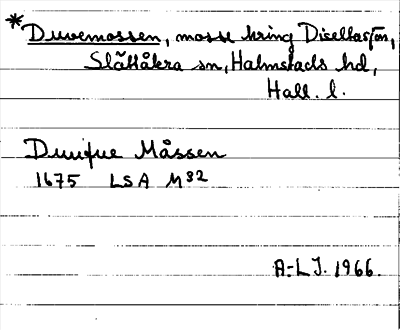 * Duvemossen, mosse kring Disellasjön,
Slättåkra sn, Halmstads hd,
Hall. l.
Duufue Måssen
1675 LSA M32
A-L J. 1966.